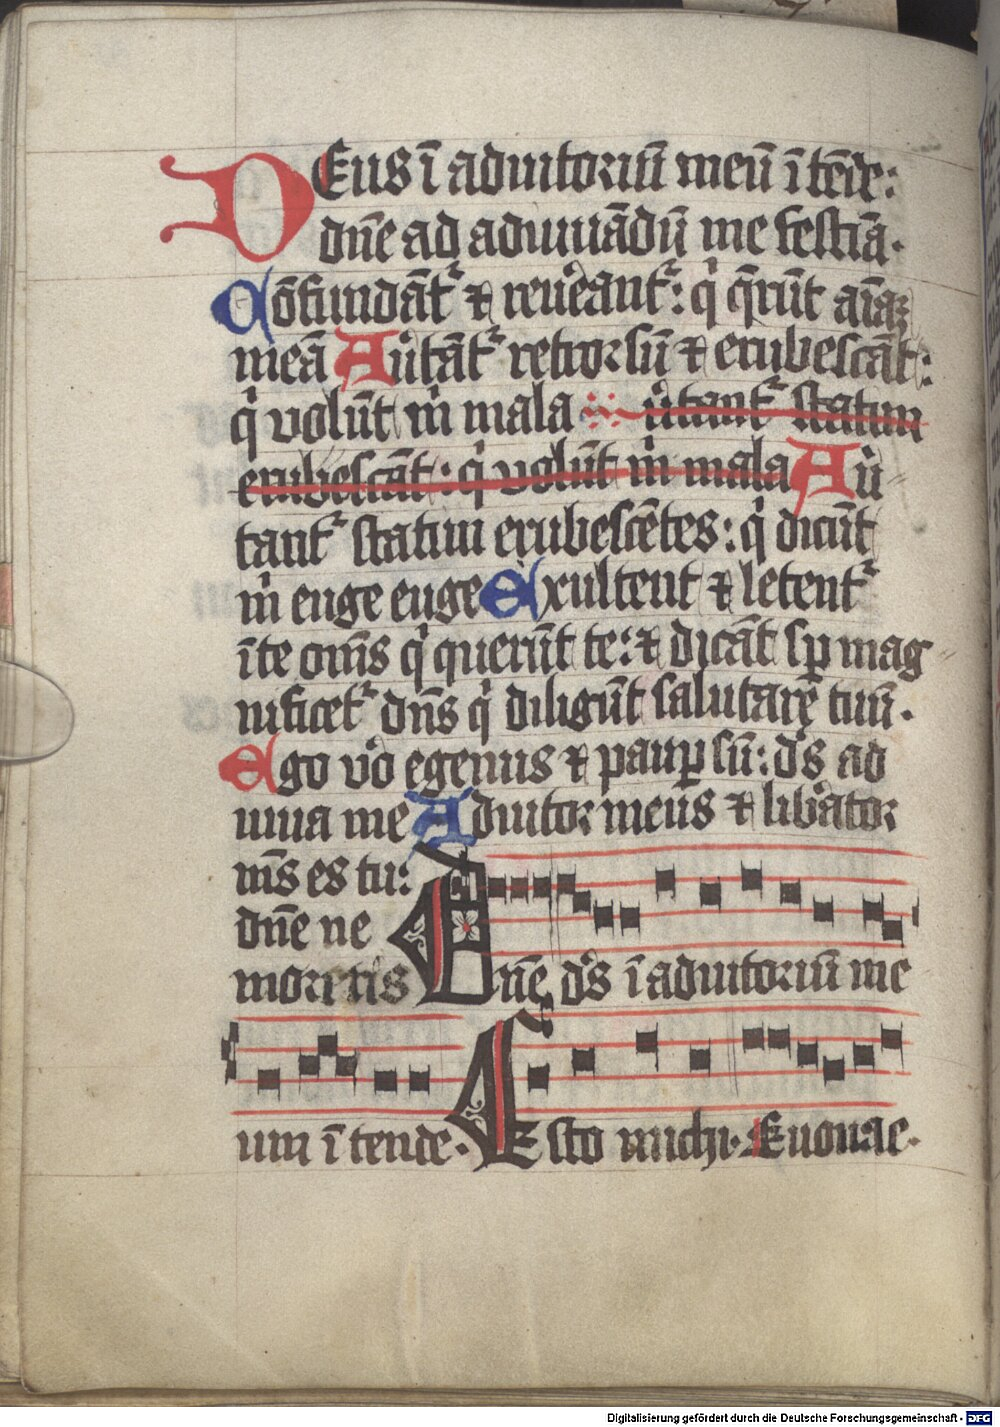 DEus ī adiutoriū meū ītēde:
dn̄e ad adiuuādū me festiā.
Cōfundāt᷑ ⁊ reuˀeant᷑: qͥ q̄rūt aīaꝫ
meā Aūtāt᷑ retrorsū ⁊ erubescāt:
qͥ volūt m̄ mala ūtant᷑ statim
erubescāt: qͥ volūt m̄ mala Aū
tant᷑ statim erubescētes: qͥ dicūt
m̄ euge euge Exultent ⁊ letent᷑
ī te om̄s qͥ querūt te: ⁊ dicāt sp̄ mag
nificet᷑ dn̄s qͥ diligūt salutarē tuū.
Ego vͦo egenus ⁊ paup̱ sū: dˀs ad
iuua me Adiutor meus ⁊ libˀator
m̄s es tu:
dn̄e ne
moreris Dn̄e dˀs ī adiutoriū me
um ī tende. Esto michi. Euouae.
Digitalisierung gefördert durch die Deutsche Forschungsgemeinschaft - DFG